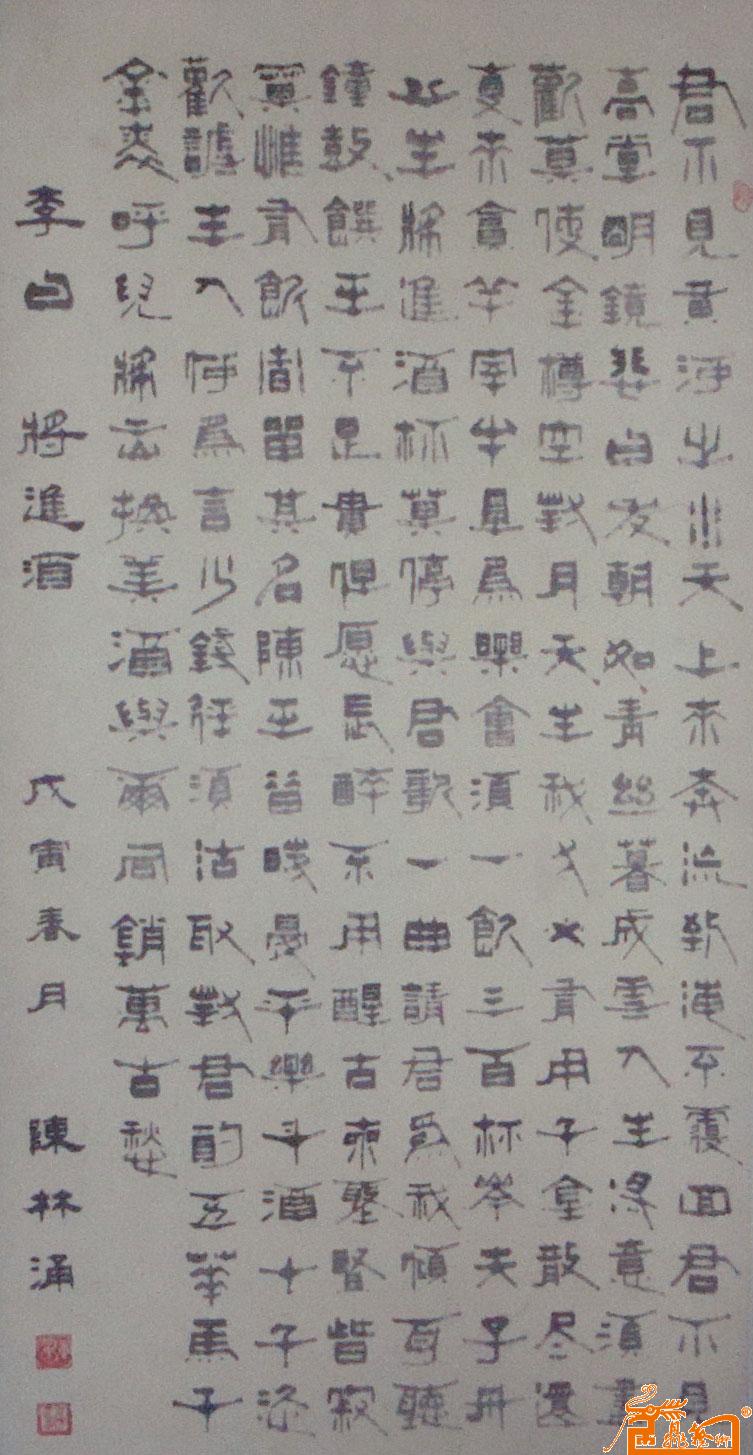 君不見黃河之水天上來奔流到海不復回君不見
高堂明鏡悲白发朝如青絲暮成雪人生得意須盡
歡莫使金樽空對月天生我才必有用千金散尽還
復來烹羊宰牛且為樂會須一飲三百杯岑夫子丹
丘生將進酒杯莫停與君歌一曲請君為我傾耳聽
鐘鼓饌玉不足貴但愿長醉不用醒古來聖賢皆寂
寞惟有飲者留其名陳王昔時宴平樂斗酒十千恣
歡謔主人何為言少錢徑須沽取對君酌五花馬千
金裘呼兒將出換美酒與爾同銷萬古愁
李白 將進酒 戊寅春月 陳林涌